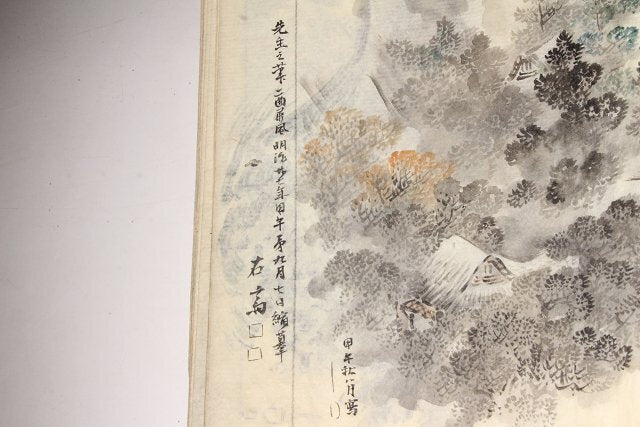 甲午秋八月寫
先生之筆二曲屏風明治廿七年甲午第九月七日縮摹